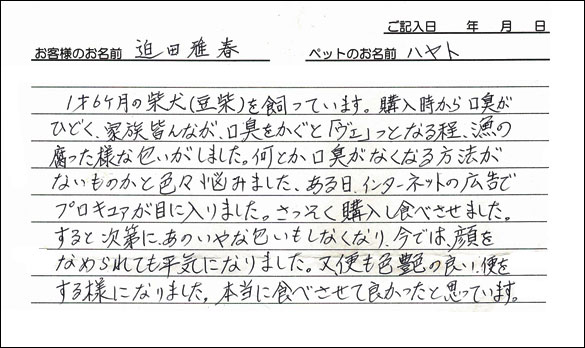 ご記入日　年　月　日
お客様のお名前 迫田雅春　ペットのお名前 ハヤト
1才6ヶ月の柴犬(豆柴)を飼っています。購入時から口臭が
ひどく、家族皆んなが、口臭をかぐと「ヴェ」っとなる程、漁の
腐った様な匂いがしました。何とか口臭がなくなる方法が
ないものかと色々悩みました、ある日、インターネットの広告で
プロキュアが目に入りました。さっそく購入し食べさせました。
すると次第に、あのいやな匂いもしなくなり、今では、顔を
なめられても平気になりました。又便も色艶の良い、便を
する様になりました。本当に食べさせて良かったと思っています。